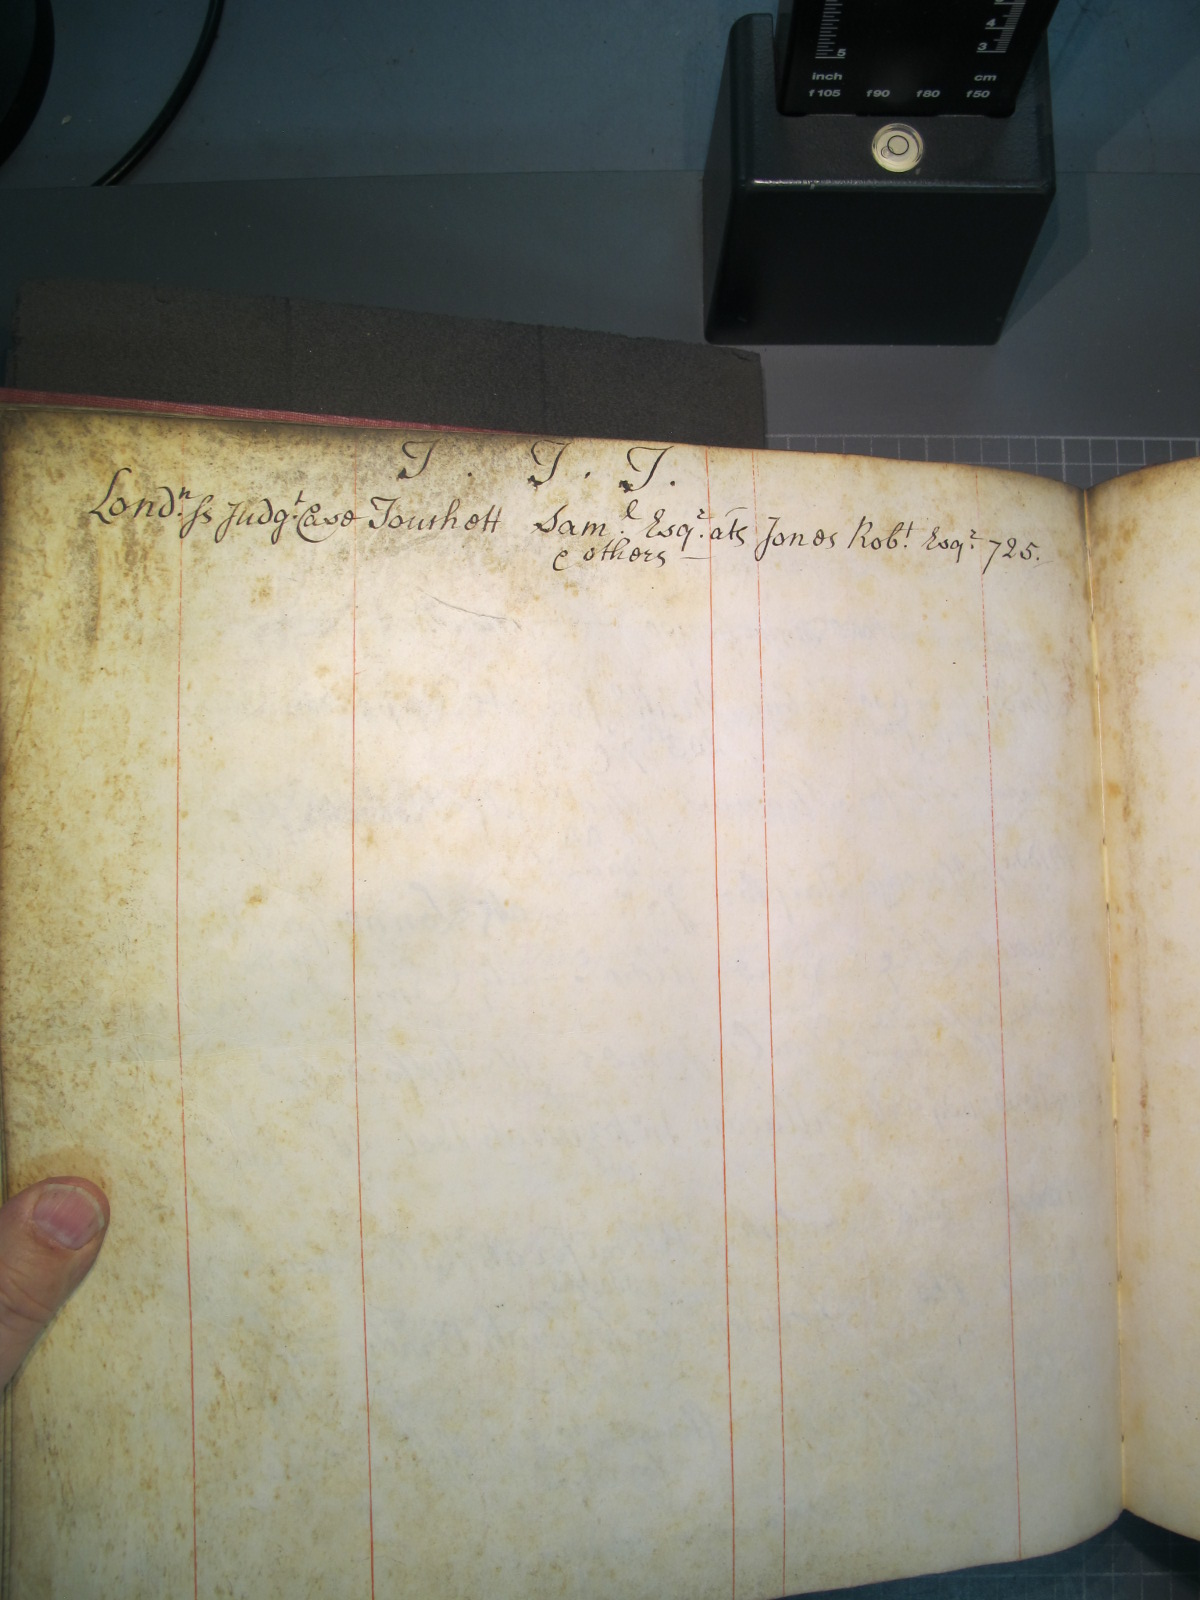 5 4 3
inch cm
f105 f90 f80 f50
T. T. T.
Lond.ⁿ ſs Judg.ᵗ Case Touchett Sam.ˡ Esq.ʳ ats Jones Rob.ᵗ Esq.ʳ 725.
& others